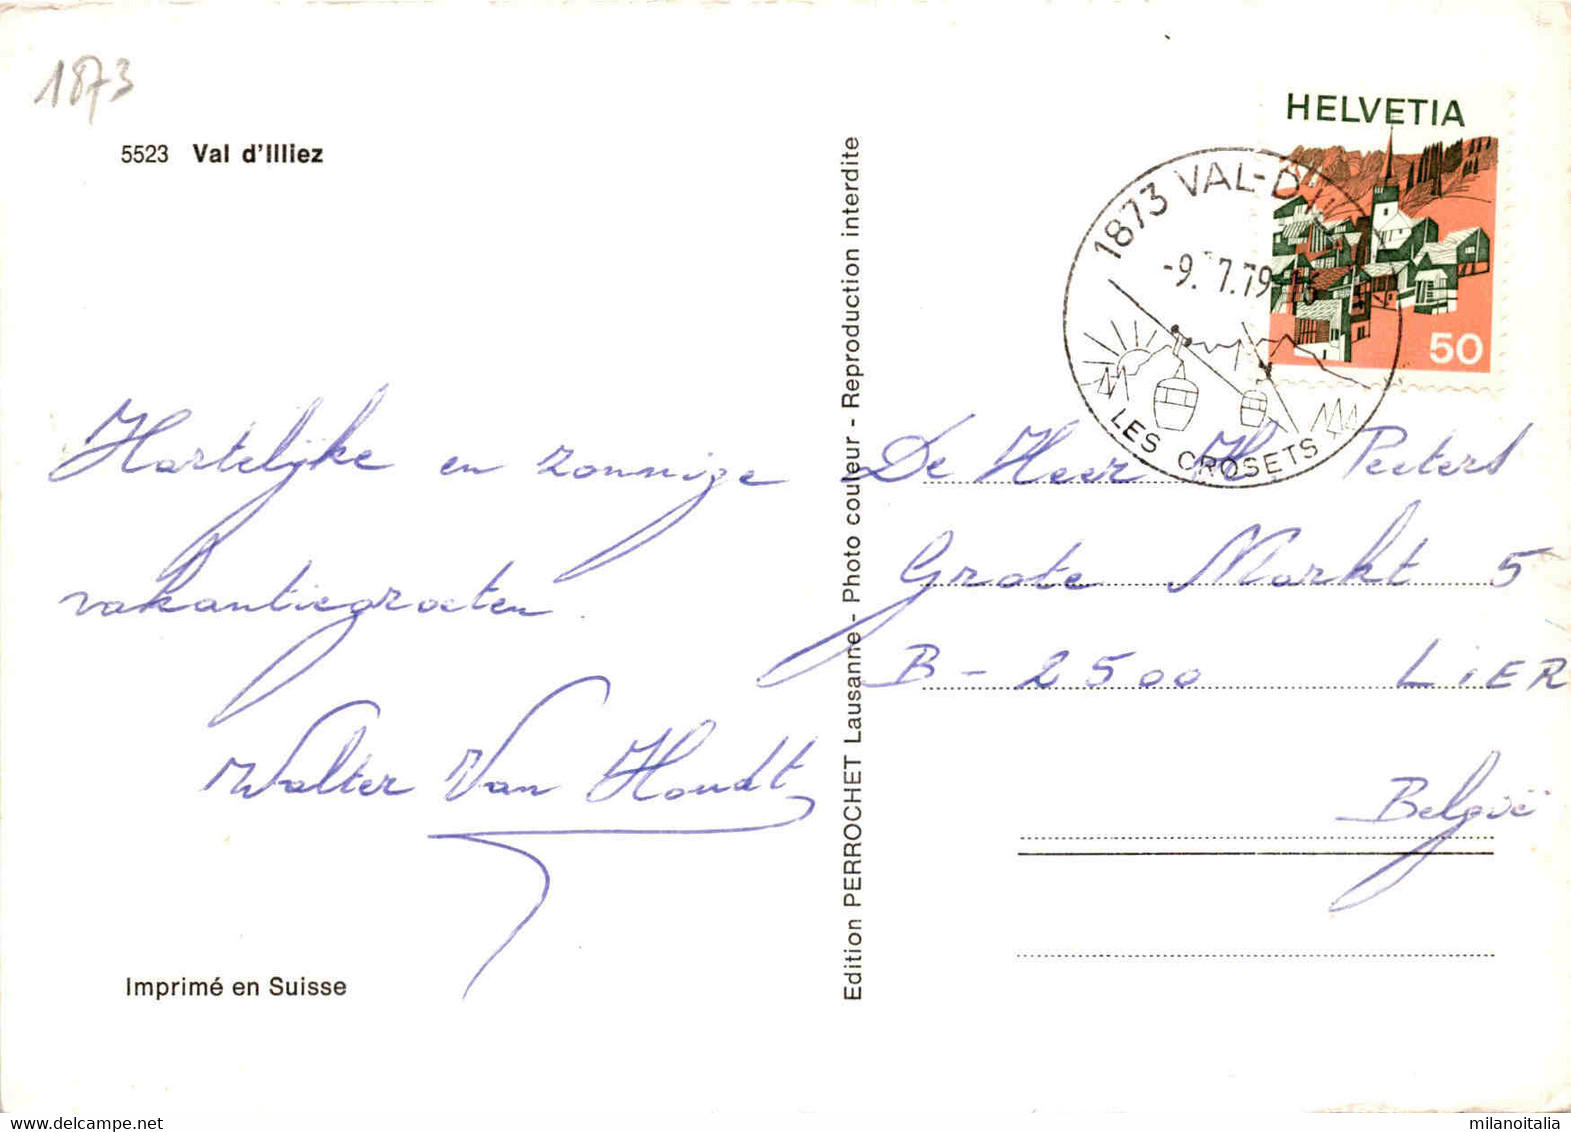 1873
5523 Val d'Illiez
Hartelijke en zonnige
vakantiegroeten
Walter Van Houdt
Imprimé en Suisse
Edition PERROCHET Lausanne - Photo couleur - Reproduction interdite
HELVETIA
50
1873 VAL-D'ILL
-9.-7.79-16
LES CROSETS
De Heer H. Peeters
Grote Markt 5
B-2500 LiER
België
www.delcampe.net
milanoitalia